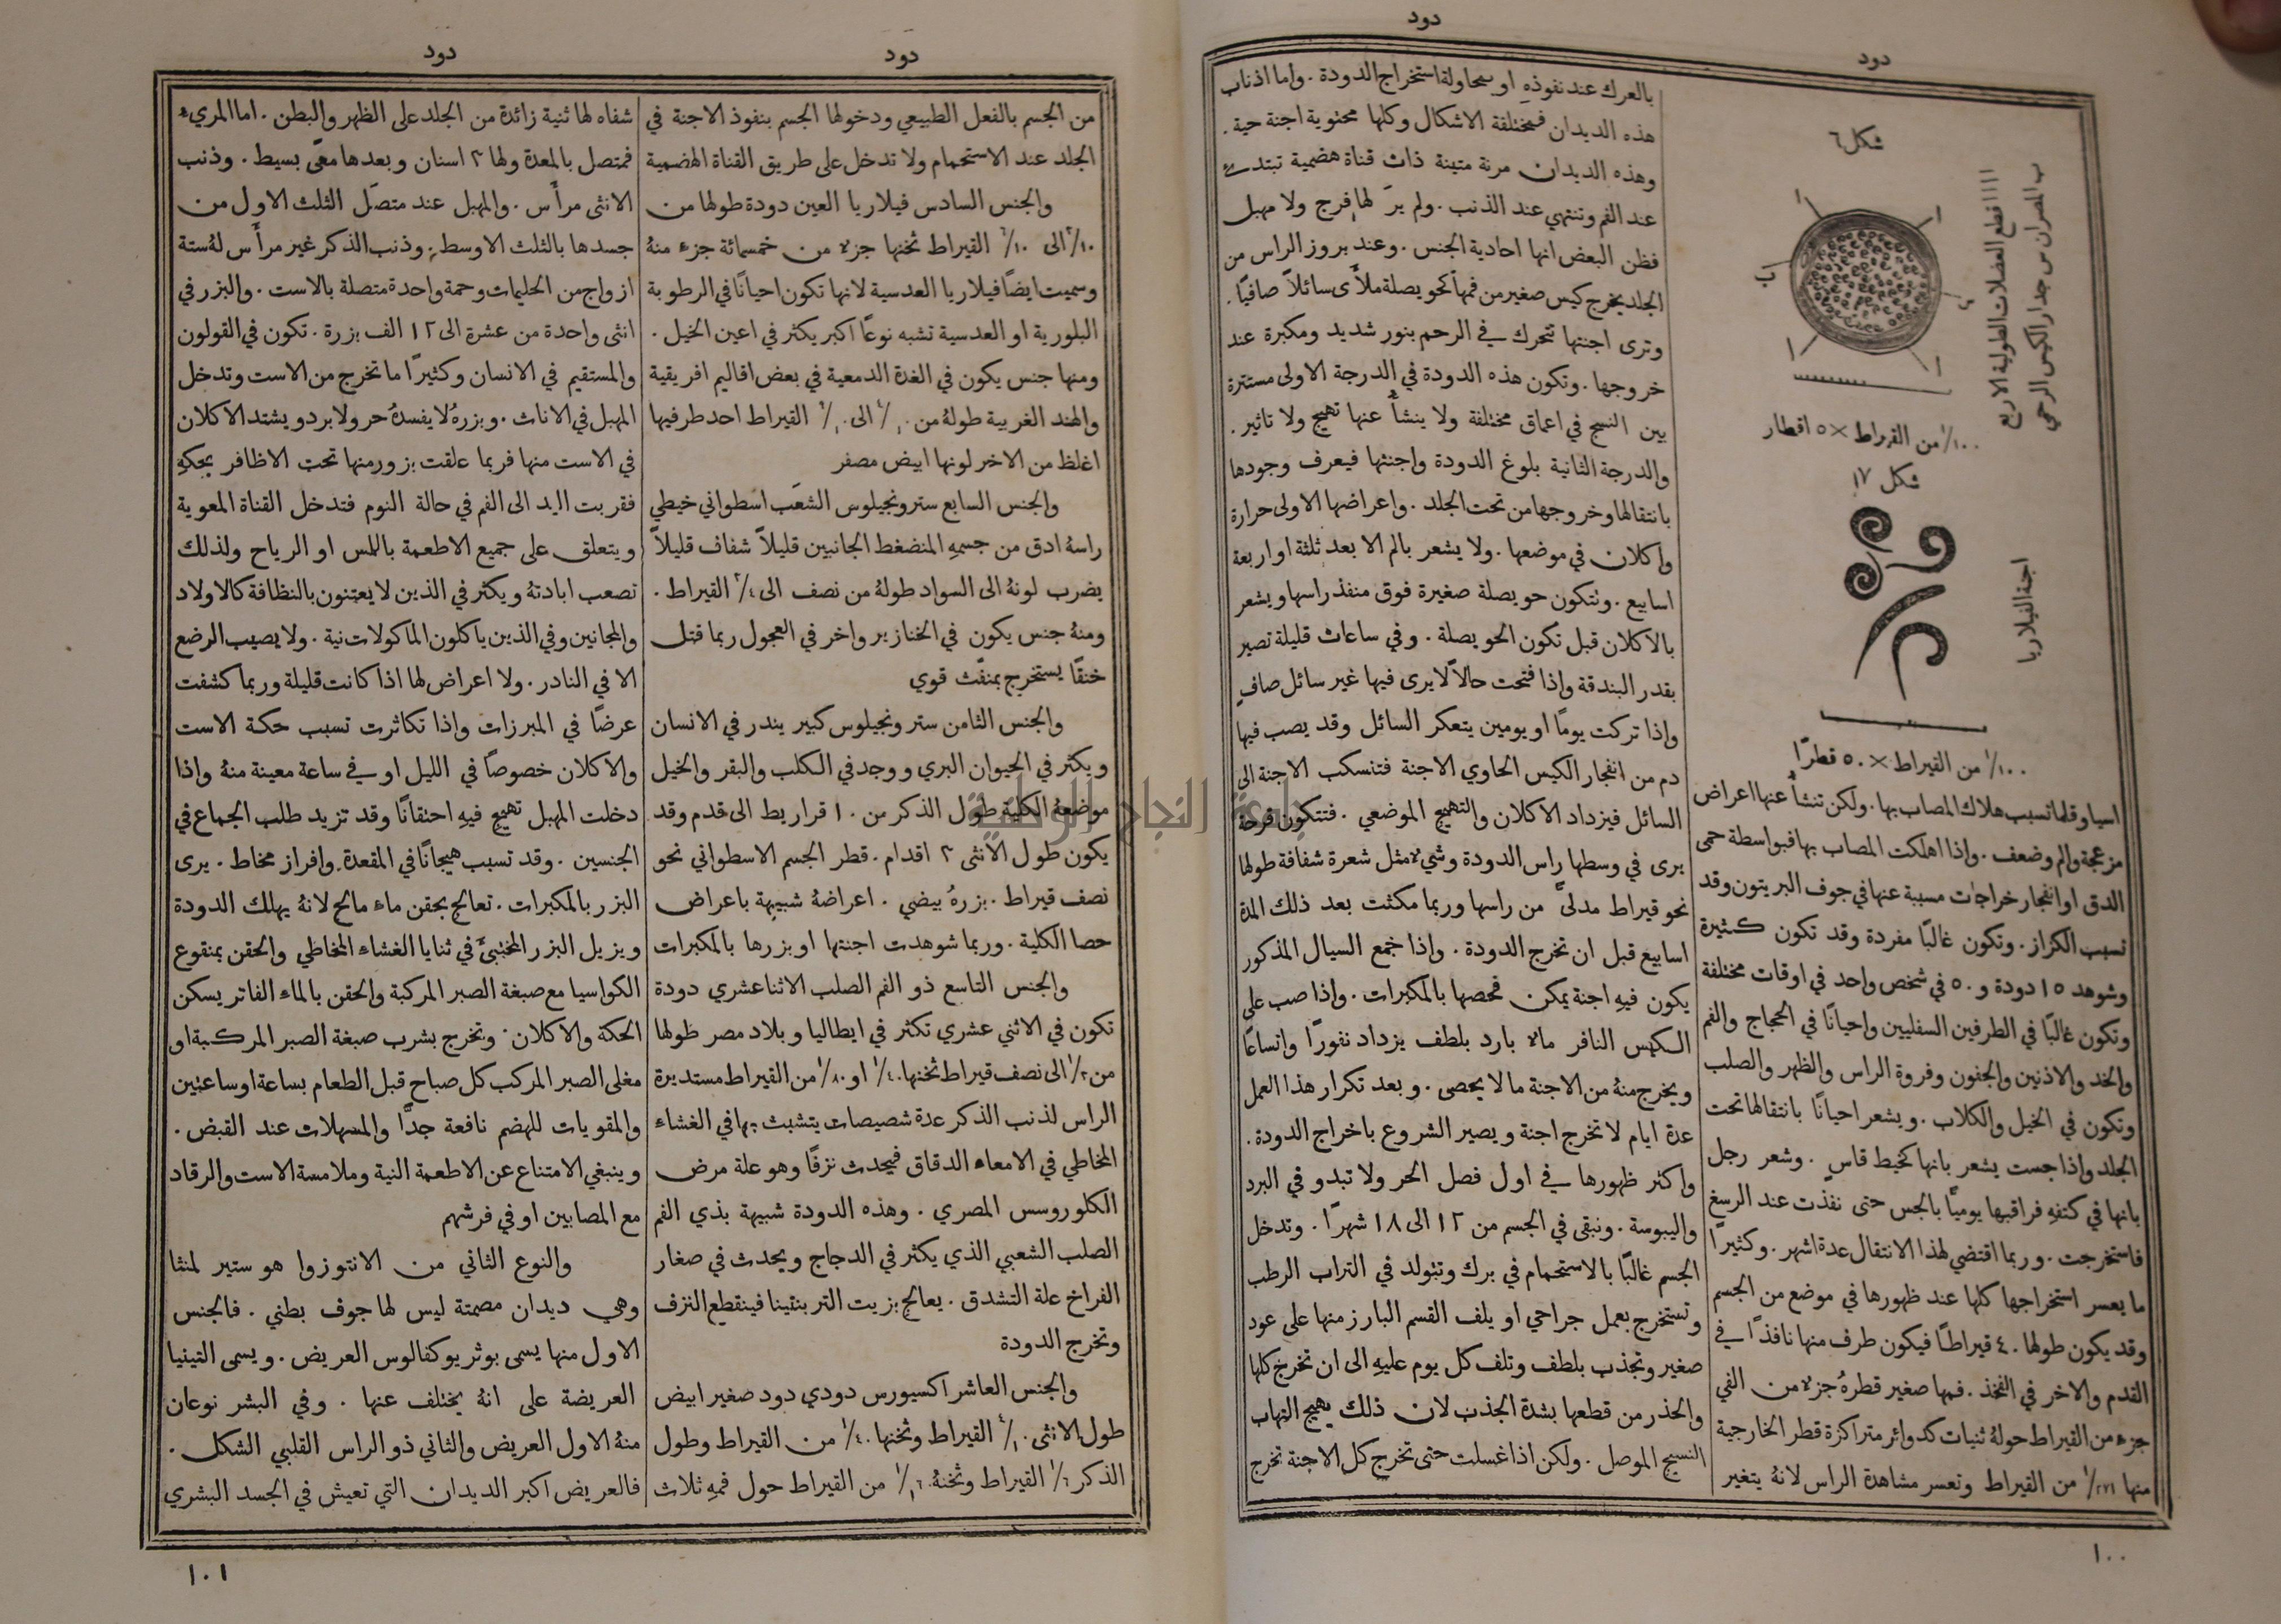 دود
دود
شكل ٦
ا ا ا ا قطع العضلات الطولية الاربع
ب المصران س جدار الكيس الرحمي
١/١٠٠ من القيراط × ٥ اقطار
شكل ١٧
اجنة الفيلاريا
١/١٠٠ من القيراط × ٥٠ قطرًا
اسيا وقلما تسبب هلاك المصاب بها. ولكن تنشأ عنها اعراض
مزعجة والم وضعف. واذا اهلكت المصاب بها فبواسطة حمى
الدق او انفجار خراجات مسببة عنها في جوف البريتون وقد
تسبب الكزاز. وتكون غالبًا مفردة وقد تكون كثيرة
وشوهد ١٥ دودة و٥٠ في شخص واحد في اوقات مختلفة
وتكون غالبًا في الطرفين السفليين واحيانًا في الحجاج والفم
والخد والاذنين والجفون وفروة الراس والظهر والصلب
وتكون في الخيل والكلاب. ويشعر احيانًا بانتقالها تحت
الجلد واذا جست يشعر بانها كخيط قاسٍ. وشعر رجل
بانها في كتفه فراقبها يوميًا بالجس حتى نفذت عند الرسغ
فاستخرجت. وربما اقتضي لهذا الانتقال عدة اشهر. وكثيرًا
ما يعسر استخراجها كلها عند ظهورها في موضع من الجسم
وقد يكون طولها ٤٠ قيراطًا فيكون طرف منها نافذًا في
القدم والاخر في الفخذ. فمها صغير قطرهُ جزء من الفي
جزء من القيراط حولهُ ثنيات كدوائر متراكزة قطر الخارجية
منها ١/٢٧١ من القيراط وتعسر مشاهدة الراس لانهُ يتغير
بالعرك عند نفوذهِ او بمحاولة استخراج الدودة. واما اذناب
هذه الديدان فمختلفة الاشكال وكلها محتوية اجنة حية.
وهذه الديدان مرنة متينة ذات قناة هضمية تبتدئ
عند الفم وتنتهي عند الذنب. ولم يرَ لها فرج ولا مهبل
فظن البعض انها احادية الجنس. وعند بروز الراس من
الجلد يخرج كيس صغير من فمها نحو بصلة ملأى سائلًا صافيًا.
وترى اجنتها تتحرك في الرحم بنور شديد ومكبرة عند
خروجها. وتكون هذه الدودة في الدرجة الاولى مستترة
بين النسج في اعماق مختلفة ولا ينشأ عنها تهيج ولا تاثير.
والدرجة الثانية بلوغ الدودة واجنتها فيعرف وجودها
بانتقالها وخروجها من تحت الجلد. واعراضها الاولى حرارة
واكلان في موضعها. ولا يشعر بالم الا بعد ثلثة او اربعة
اسابيع. وتتكون حويصلة صغيرة فوق منفذ راسها ويشعر
بالاكلان قبل تكون الحويصلة. وفي ساعات قليلة تصير
بقدر البندقة واذا فتحت حالًا لا يرى فيها غير سائل صافٍ
واذا تركت يومًا او يومين يتعكر السائل وقد يصب فيها
دم من انفجار الكيس الحاوي الاجنة فتنسكب الاجنة الى
السائل فيزداد الاكلان والتهيج الموضعي. فتتكون قرحة
يرى في وسطها راس الدودة وشيء مثل شعرة شفافة طولها
نحو قيراط مدلىً من راسها وربما مكثت بعد ذلك المدة
اسابيع قبل ان تخرج الدودة. واذا جمع السيال المذكور
يكون فيهِ اجنة يمكن فحصها بالمكبرات. واذا صب على
الكيس النافر ماء بارد بلطف يزداد نفورًا واتساعًا
ويخرج منهُ من الاجنة ما لا يحصى. وبعد تكرار هذا العمل
عدة ايام لا تخرج اجنة ويصير الشروع باخراج الدودة.
واكثر ظهورها في اول فصل الحر ولا تبدو في البرد
واليبوسة. وتبقى في الجسم من ١٢ الى ١٨ شهرًا. وتدخل
الجسم غالبًا بالاستحمام في برك وتتولد في التراب الرطب
وتستخرج بعمل جراحي او يلف القسم البارز منها على عود
صغير وتجذب بلطف وتلف كل يوم عليهِ الى ان تخرج كلها
والحذر من قطعها بشدة الجذب لان ذلك يهيج التهاب
النسيج الموصل. ولكن اذا غسلت حتى تخرج كل الاجنة تخرج
١٠٠
دود
دود
من الجسم بالفعل الطبيعي ودخولها الجسم بنفوذ الاجنة في
الجلد عند الاستحمام ولا تدخل على طريق القناة الهضمية
والجنس السادس فيلاريا العين دودة طولها من
الى القيراط ثخنها جزء من خمسمائة جزء منهُ
وسميت ايضًا فيلاريا العدسية لانها تكون احيانًا في الرطوبة
البلورية او العدسية تشبه نوعًا اكبر يكثر في اعين الخيل.
ومنها جنس يكون في الغدة الدمعية في بعض اقاليم افريقية
والهند الغربية طولهُ من الى القيراط احد طرفيها
اغلظ من الاخر لونها ابيض مصفر
والجنس السابع سترونجيلوس الشعَب اسطواني خيطي
راسهُ ادق من جسمهِ المنضغط الجانبين قليلًا شفاف قليلًا
يضرب لونهُ الى السواد طولهُ من نصف الى ٣/٤ القيراط.
ومنهُ جنس يكون في الخنازير واخر في العجول ربما قتل
خنقًا يستخرج بمنفّث قوي
والجنس الثامن سترونجيلوس كبير يندر في الانسان
ويكثر في الحيوان البري ووجد في الكلب والبقر والخيل
موضعهُ الكلية طول الذكر من ١٠ قراريط الى قدم وقد
يكون طول الانثى ٣ اقدام. قطر الجسم الاسطواني نحو
نصف قيراط. بزرهُ بيضي. اعراضهُ شبيهة باعراض
حصا الكلية. وربما شوهدت اجنتها او بزرها بالمكبرات
والجنس التاسع ذو الفم الصلب الاثناعشري دودة
تكون في الاثني عشري تكثر في ايطاليا وبلاد مصر طولها
من ١/٣ الى نصف قيراط ثخنها ١/٤٠ او ١/٨٠ من القيراط مستديرة
الراس لذنب الذكر عدة شصيصات يتشبث بها في الغشاء
المخاطي في الامعاء الدقاق فيحدث نزفًا وهو علة مرض
الكلوروسس المصري. وهذه الدودة شبيهة بذي الفم
الصلب الشعبي الذي يكثر في الدجاج ويحدث في صغار
الفراخ علة التشدق. يعالج بزيت التربنتينا فينقطع النزف
وتخرج الدودة
والجنس العاشر اكسيورس دودي دود صغير ابيض
طول الانثى القيراط وثخنها ١/٤٠ من القيراط وطول
الذكر ١/٦ القيراط وثخنهُ من القيراط حول فمهِ ثلاث
شفاه لها ثنية زائدة من الجلد على الظهر والبطن. اما المريء
فمتصل بالمعدة ولها ٣ اسنان وبعدها معًى بسيط. وذنب
الانثى مرأَس. والمهبل عند متصَل الثلث الاول من
جسدها بالثلث الاوسط. وذنب الذكر غير مرأَس لهُ ستة
ازواج من الحليمات وحمة واحدة متصلة بالاست. والبزر في
انثى واحدة من عشرة الى ١٢ الف بزرة. تكون في القولون
والمستقيم في الانسان وكثيرًا ما تخرج من الاست وتدخل
المهبل في الاناث. وبزرهُ لا يفسدهُ حر ولا برد ويشتد الاكلان
في الاست منها فربما علقت بزور منها تحت الاظافر بحكهِ
فقربت اليد الى الفم في حالة النوم فتدخل القناة المعوية
ويتعلق على جميع الاطعمة باللمس او الرياح ولذلك
تصعب ابادتهُ ويكثر في الذين لا يعتنون بالنظافة كالاولاد
والمجانين وفي الذين ياكلون الماكولات نية. ولا يصيب الرضع
الا في النادر. ولا اعراض لها اذا كانت قليلة وربما كشفت
عرضًا في المبرزات واذا تكاثرت تسبب حكة الاست
والاكلان خصوصًا في الليل او في ساعة معينة منهُ واذا
دخلت المهبل تهيج فيهِ احتقانًا وقد تزيد طلب الجماع في
الجنسين. وقد تسبب هيجانًا في المقعدة وافراز مخاط. يرى
البزر بالمكبرات. تعالج بحقن ماء مالح لانهُ يهلك الدودة
ويزيل البزر المختبئَ في ثنايا الغشاء المخاطي والحقن بمنقوع
الكواسيا مع صبغة الصبر المركبة والحقن بالماء الفاتر يسكن
الحكة والاكلان. وتخرج بشرب صبغة الصبر المركبة او
مغلى الصبر المركب كل صباح قبل الطعام بساعة او ساعتين
والمقويات للهضم نافعة جدًّا والمسهلات عند القبض.
وينبغي الامتناع عن الاطعمة النية وملامسة الاست والرقاد
مع المصابين او في فرشهم
والنوع الثاني من الانتوزوا هو ستير لمنثا
وهي ديدان مصمتة ليس لها جوف بطني. فالجنس
الاول منها يسمى بوثريوكفالوس العريض. ويسمى التينيا
العريضة على انهُ يختلف عنها. وفي البشر نوعان
منهُ الاول العريض والثاني ذو الراس القلبي الشكل.
فالعريض اكبر الديدان التي تعيش في الجسد البشري
١٠١
جامعة النجاح الوطنية